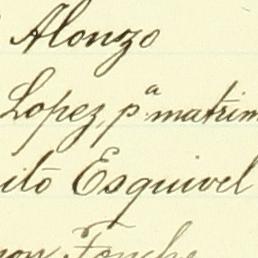 Alonzo
Lopez, pª matrim
ito Esquivel